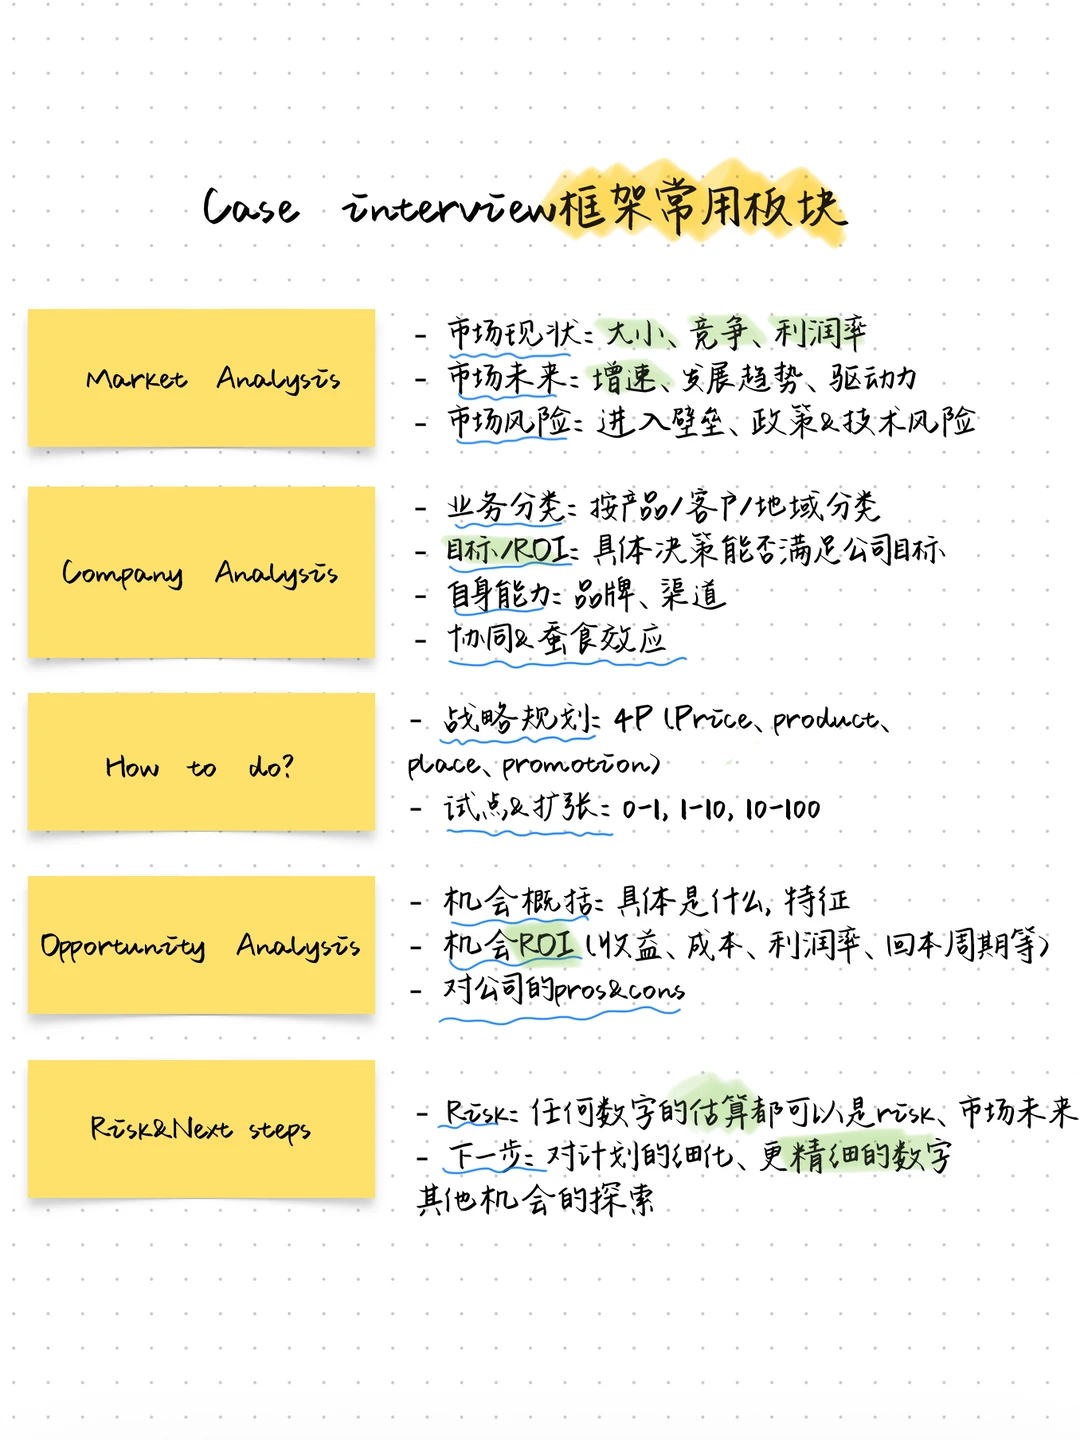 Case interview框架常用板块
Market Analysis
- 市场现状: 大小、竞争、利润率
- 市场未来: 增速、发展趋势、驱动力
- 市场风险: 进入壁垒、政策&技术风险
Company Analysis
- 业务分类: 按产品/客户/地域分类
- 目标/ROI: 具体决策能否满足公司目标
- 自身能力: 品牌、渠道
- 协同&蚕食效应
How to do?
- 战略规划: 4P (Price、product、
place、promotion)
- 试点&扩张: 0-1, 1-10, 10-100
Opportunity Analysis
- 机会概括: 具体是什么, 特征
- 机会ROI (收益、成本、利润率、回本周期等)
- 对公司的pros&cons
Risk&Next steps
- Risk: 任何数字的估算都可以是risk、市场未来
- 下一步: 对计划的细化、更精细的数字
其他机会的探索